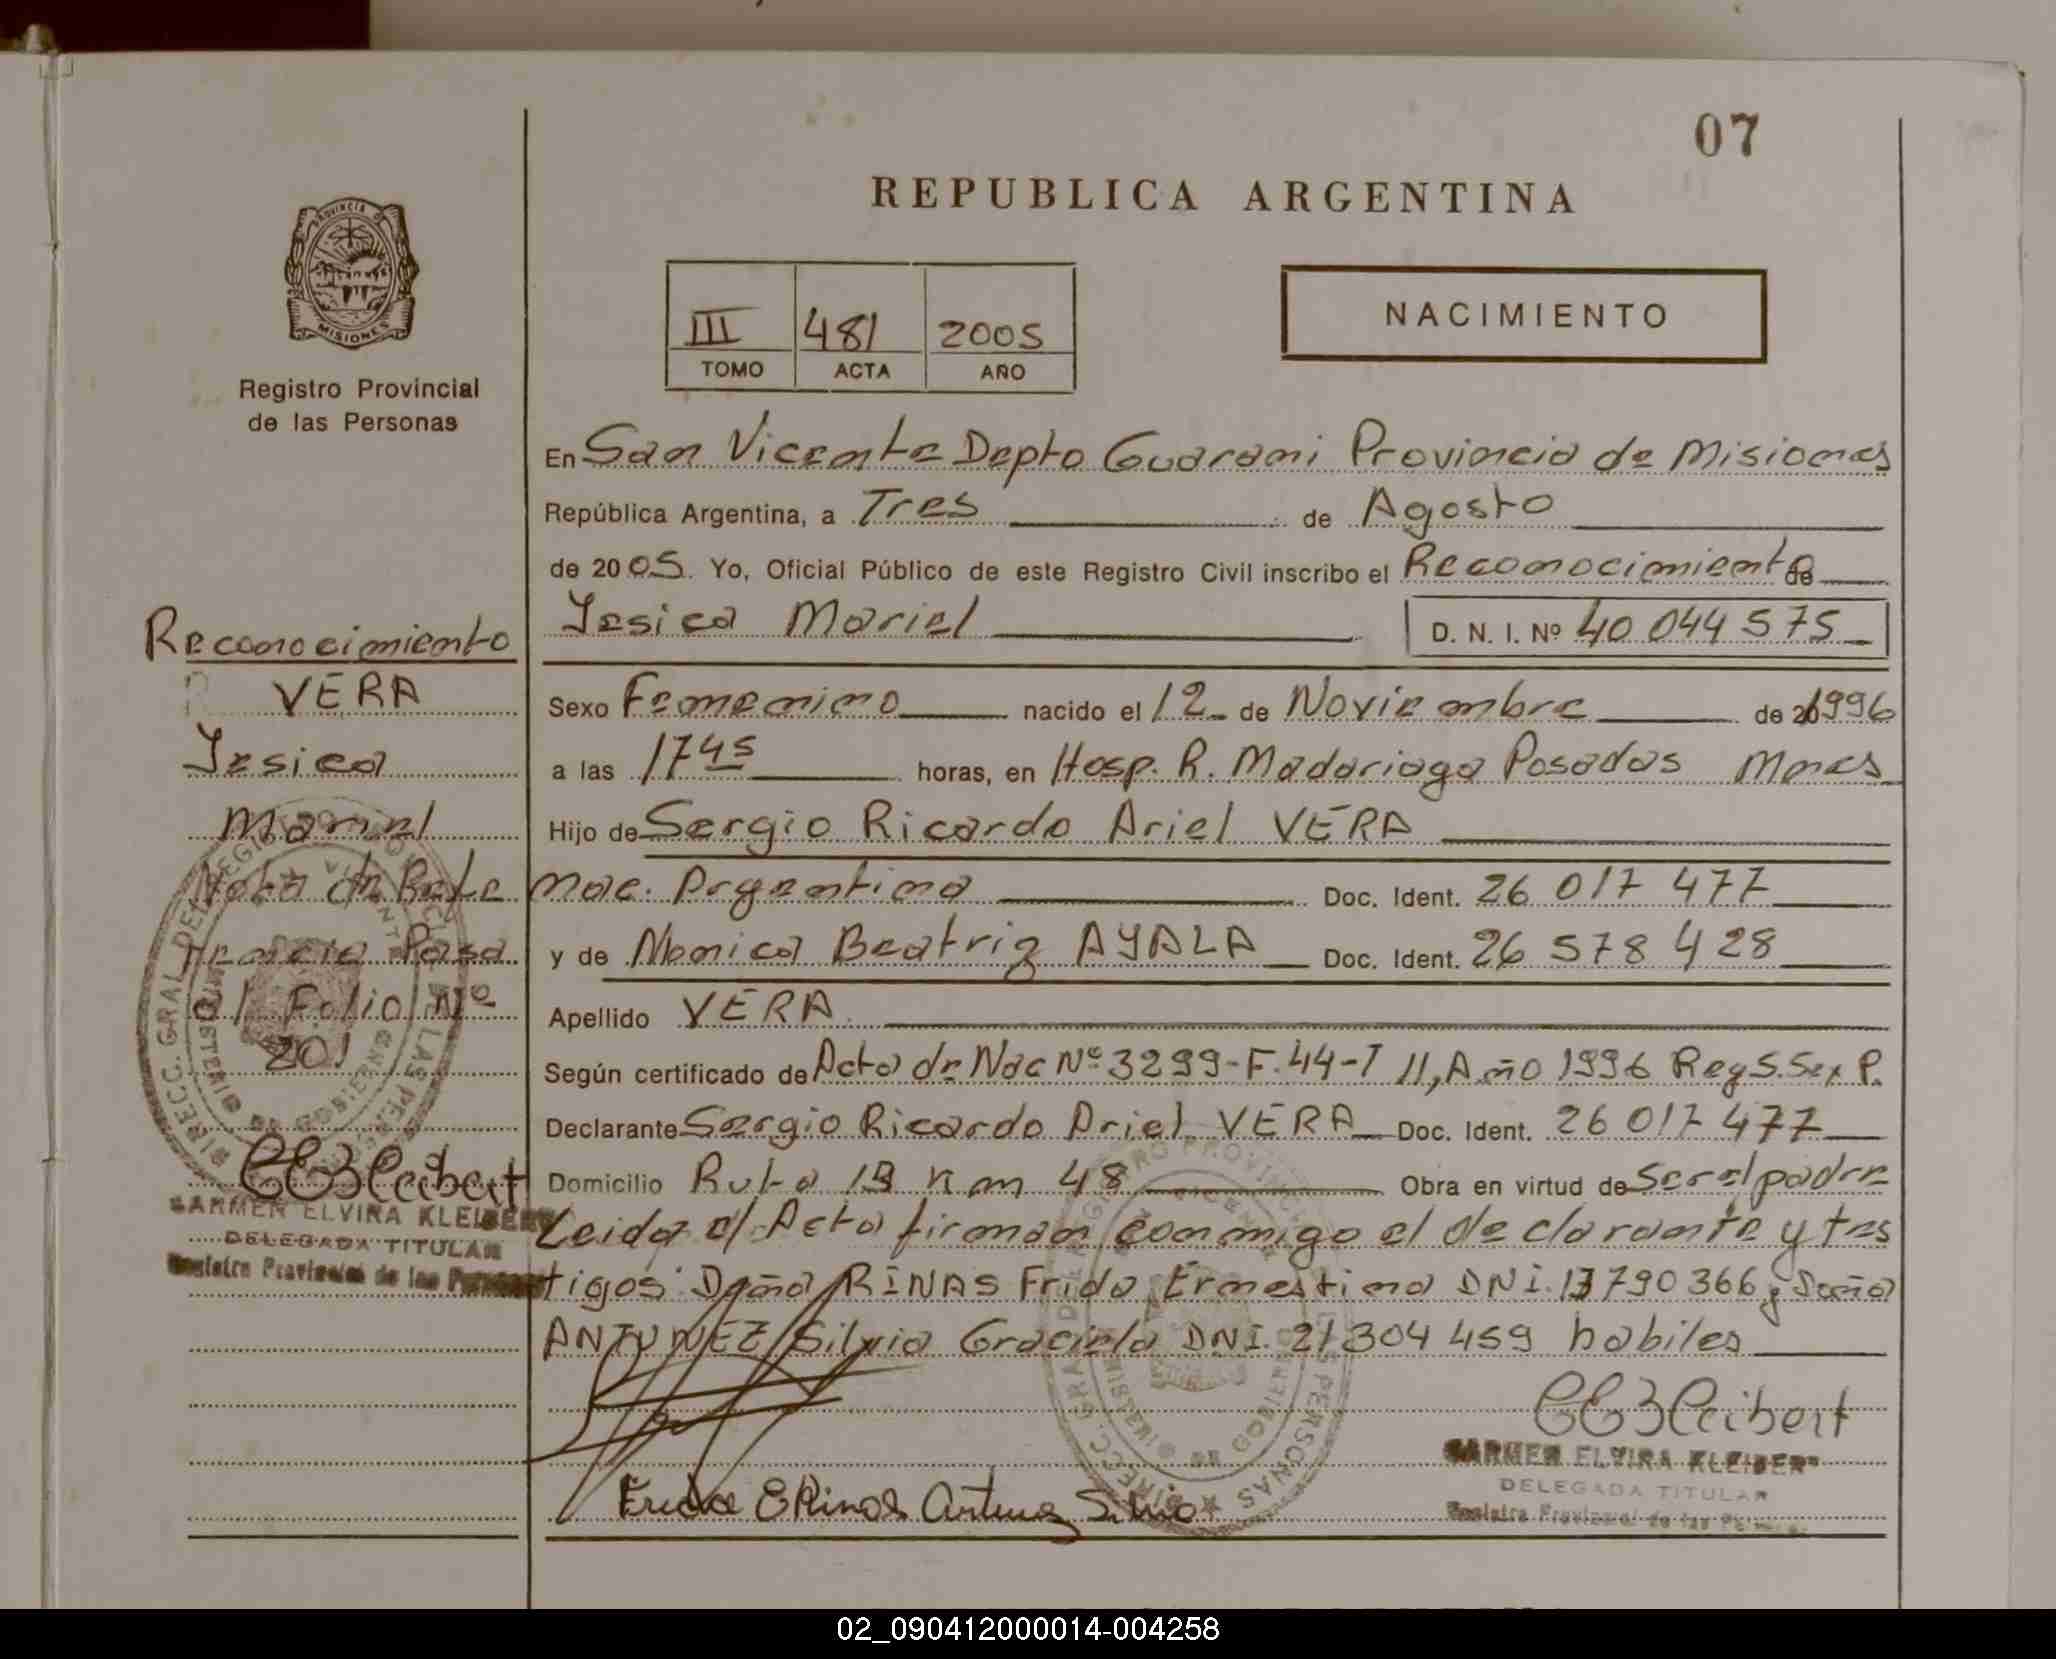 07
REPUBLICA ARGENTINA
PROVINCIA DE
MISIONES
Registro Provincial
de las Personas
III 481 2005
TOMO ACTA AÑO
NACIMIENTO
En San Vicente Depto Guarani Provincia de Misiones
República Argentina, a Tres de Agosto
de 2005. Yo, Oficial Público de este Registro Civil inscribo el Reconocimiento de
Jesica Mariel D. N. I. Nº 40 044 575
Sexo Femenino nacido el 12 de Noviembre de 1996
a las 17 45 horas, en Hosp. R. Madariaga Posadas Mnes
Hijo de Sergio Ricardo Ariel VERA
Nac. Argentina Doc. Ident. 26 017 477
y de Monica Beatriz AYALA Doc. Ident. 26 578 428
Apellido VERA
Según certificado de Acta de Nac Nº 3299-F.44-T II, Año 1996 Reg S. Sex P.
Declarante Sergio Ricardo Ariel VERA Doc. Ident. 26 017 477
Domicilio Ruta 13 Km 48 Obra en virtud de Ser el padre
Leida el Acta firman conmigo el declarante y tes
tigos Doña RINAS Frida Ernestina DNI. 17790366 y Doña
ANTUNEZ Silvia Graciela DNI. 21304459 habiles
Reconocimiento
VERA
Jesica
Mariel
Nota de Refe
rencia Pasa
al Folio Nº
201
CARMEN ELVIRA KLEIBERT
DELEGADA TITULAR
Registro Provincial de las Personas
Frida E Rinas Antunez Silvia
CARMEN ELVIRA KLEIBERT
DELEGADA TITULAR
Registro Provincial de las Personas
02_090412000014-004258